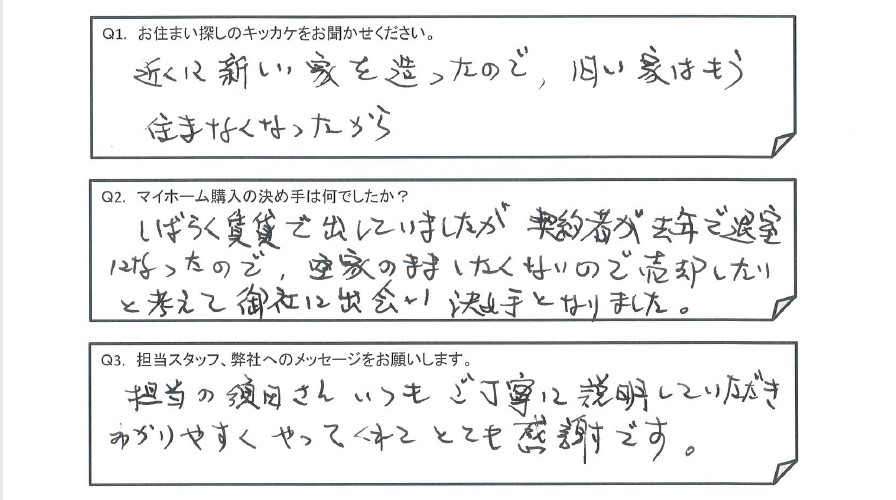 Q1. お住まい探しのキッカケをお聞かせください。
近くに新しい家を造ったので、旧い家はもう
住まなくなったから
Q2. マイホーム購入の決め手は何でしたか？
しばらく賃貸で出していましたが 契約者が去年で退室
になったので、空家のまましたくないので売却したい
と考えて御社に出会い 決め手となりました。
Q3. 担当スタッフ、弊社へのメッセージをお願いします。
担当の須田さん いつも ご丁寧に説明していただき
わかりやすく やってくれて とても感謝です。